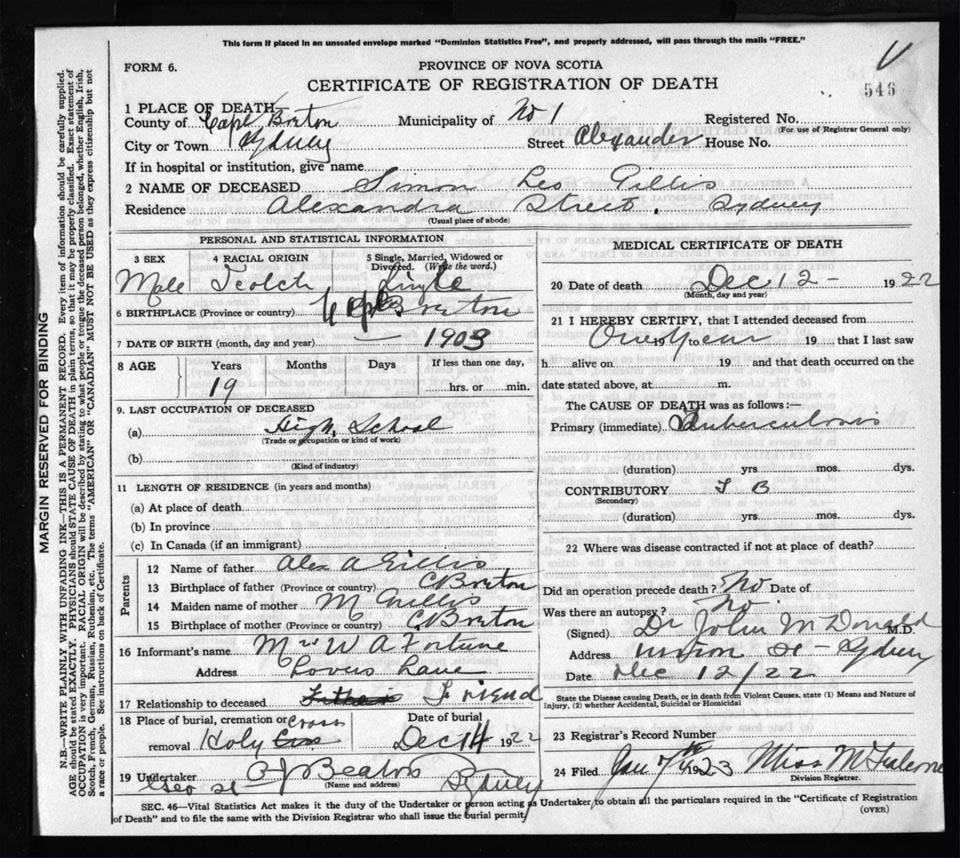 This form if placed in an unsealed envelope marked "Dominion Statistics Free", and properly addressed, will pass through the mails "FREE."
FORM 6.
PROVINCE OF NOVA SCOTIA
CERTIFICATE OF REGISTRATION OF DEATH
546
1 PLACE OF DEATH
County of Cape Breton Municipality of No 1 Registered No.
(For use of Registrar General only)
City or Town Sydney Street Alexander House No.
If in hospital or institution, give name
2 NAME OF DECEASED Simon Leo Gillis
Residence Alexandra Street. Sydney
(Usual place of abode)
PERSONAL AND STATISTICAL INFORMATION
3 SEX 4 RACIAL ORIGIN 5 Single, Married, Widowed or Divorced. (Write the word.)
Male Scotch Single
6 BIRTHPLACE (Province or country) Cape Breton
7 DATE OF BIRTH (month, day and year) — 1903
8 AGE Years Months Days If less than one day,
19 hrs. or min.
9. LAST OCCUPATION OF DECEASED
(a) High School
(Trade or occupation or kind of work)
(b)
(Kind of industry)
11 LENGTH OF RESIDENCE (in years and months)
(a) At place of death
(b) In province
(c) In Canada (if an immigrant)
Parents
12 Name of father Alex A Gillis
13 Birthplace of father (Province or country) C Breton
14 Maiden name of mother M Gillis
15 Birthplace of mother (Province or country) C Breton
16 Informant's name Mr W A Fortune
Address Lovers Lane
17 Relationship to deceased Friend
18 Place of burial, cremation or removal Holy Cross
Date of burial Dec 14 1922
19 Undertaker A J Beaton
Geo St Sydney
(Name and address)
MEDICAL CERTIFICATE OF DEATH
20 Date of death Dec 12 - 1922
(Month, day and year)
21 I HEREBY CERTIFY, that I attended deceased from
Over year to 19 that I last saw
h alive on 19 and that death occurred on the
date stated above, at m.
The CAUSE OF DEATH was as follows:—
Primary (immediate) Tuberculosis
(duration) yrs. mos. dys.
CONTRIBUTORY T B
(Secondary)
(duration) yrs. mos. dys.
22 Where was disease contracted if not at place of death?
Did an operation precede death? No Date of
Was there an autopsy? No.
(Signed) Dr John McDonald M.D.
Address Union St - Sydney
Date Dec 12/22
State the Disease causing Death, or in death from Violent Causes, state (1) Means and Nature of
Injury, (2) whether Accidental, Suicidal or Homicidal
23 Registrar's Record Number
24 Filed Jan 7th 1923 Miss
Division Registrar.
SEC. 46—Vital Statistics Act makes it the duty of the Undertaker or person acting as Undertaker to obtain all the particulars required in the "Certificate of Registration
of Death" and to file the same with the Division Registrar who shall issue the burial permit.
(OVER)
MARGIN RESERVED FOR BINDING
N.B.—WRITE PLAINLY WITH UNFADING INK—THIS IS A PERMANENT RECORD. Every item of information should be carefully supplied.
AGE should be stated EXACTLY. PHYSICIANS should STATE CAUSE OF DEATH in plain terms, so that it may be properly classified. Exact statement of
OCCUPATION is very important. RACIAL ORIGIN will be described by stating to what people or tongue the deceased person belonged, whether English, Irish,
Scotch, French, German, Russian, Ruthenian, etc. The terms "AMERICAN" OR "CANADIAN" MUST NOT BE USED as they express citizenship but not
a race or people. See instructions on back of Certificate.